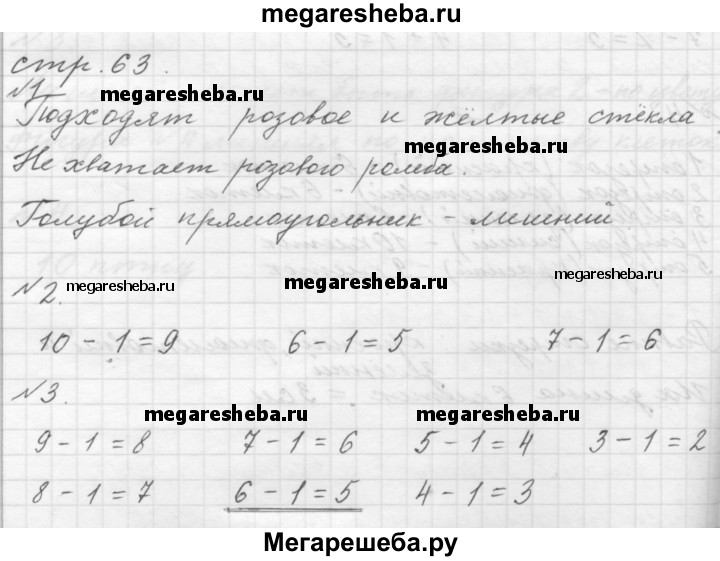 megaresheba.ru
стр. 63.
№1
megaresheba.ru
megaresheba.ru
Подходят розовое и жёлтые стёкла
Не хватает розового ромба.
Голубой прямоугольник - лишний
№2.
megaresheba.ru
megaresheba.ru
megaresheba.ru
10 - 1 = 9 6 - 1 = 5 7 - 1 = 6
№3.
megaresheba.ru
megaresheba.ru
9 - 1 = 8 7 - 1 = 6 5 - 1 = 4 3 - 1 = 2
8 - 1 = 7 6 - 1 = 5 4 - 1 = 3
Мегарешеба.ру